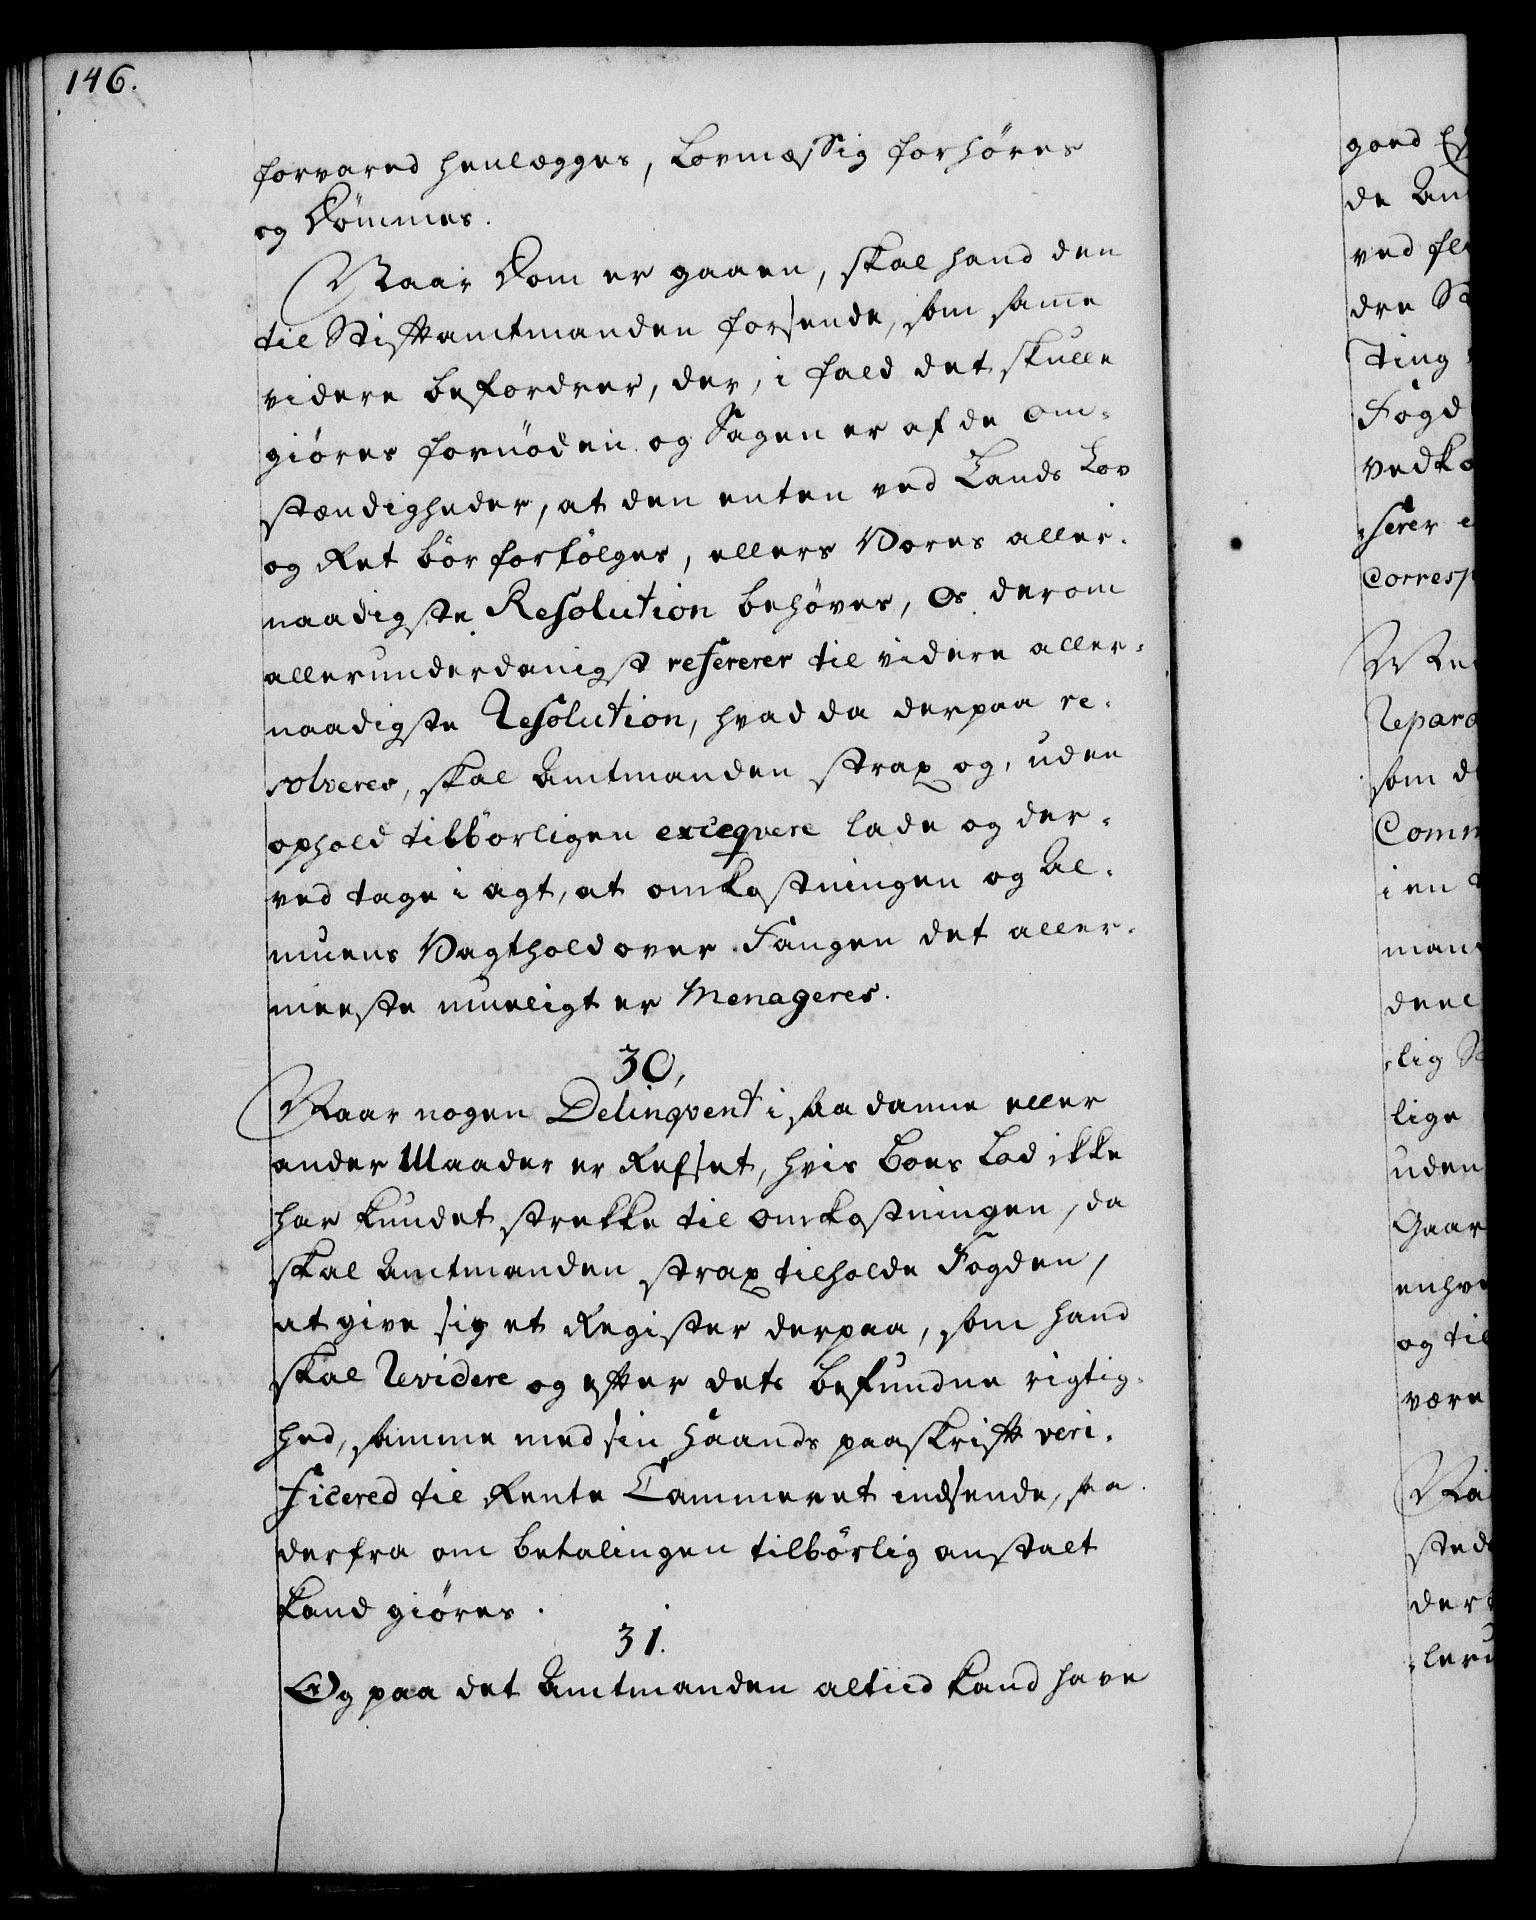 146.
forvared henlægges, Lovmæssig forhøres
og Dømmes.
Naar Dom er gaaen, skal hand den
til Stiftamtmanden forsende, som samme
videre befordrer, der, i fald det skulle
giøres fornøden og Sagen er af de om-
stændigheder, at den enten ved Lands Lov
og Ret bør forfølges, ellers Vores aller-
naadigste Resolution behøves, Os derom
allerunderdanigst refererer til videre aller-
naadigste Resolution, hvad da derpaa re-
solveres, skal Amtmanden strax og, uden
ophold tilbørligen exeqvere lade og der-
ved tage i agt, at omkostningen og Al-
muens Vagthold over Fangen det aller-
meeste mueligt er Menageres.
30,
Naar nogen Delinqvent i saadanne eller
andre Maader er Refset, hvis Boes Lod ikke
har kundet strekke til omkostningen, da
skal Amtmanden strax tilholde Fogden,
at give sig et Register derpaa, som hand
skal Revidere og efter dets befundne rigtig-
hed, samme med sin Haands paaskrift veri-
ficered til Rente Cammeret indsende, saa
derfra om betalingen tilbørlig anstalt
kand giøres.
31.
Og paa det Amtmanden altiid kand have
goed
de
ved
dre
Ting
Fogd
vedko
serer
Corresp
Repara
som d
Comm
i en
man
deel
lig
lige
uden
Gaar
enhve
og til
være
sted
der